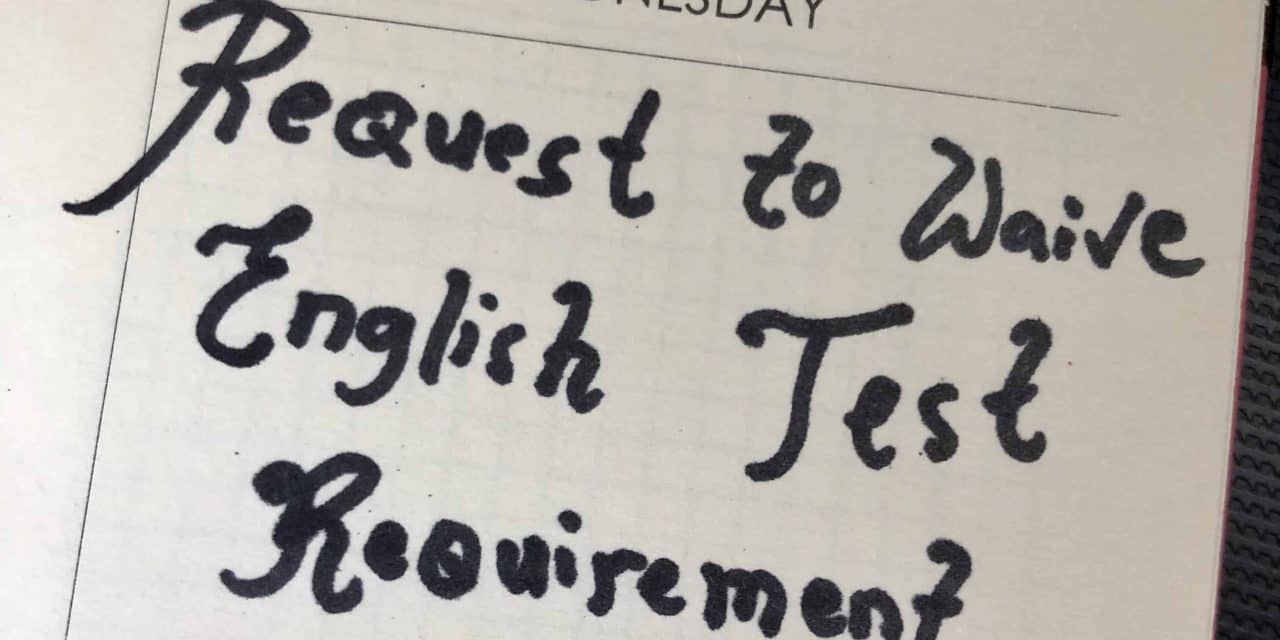 Request to Waive
English Test
Requirement